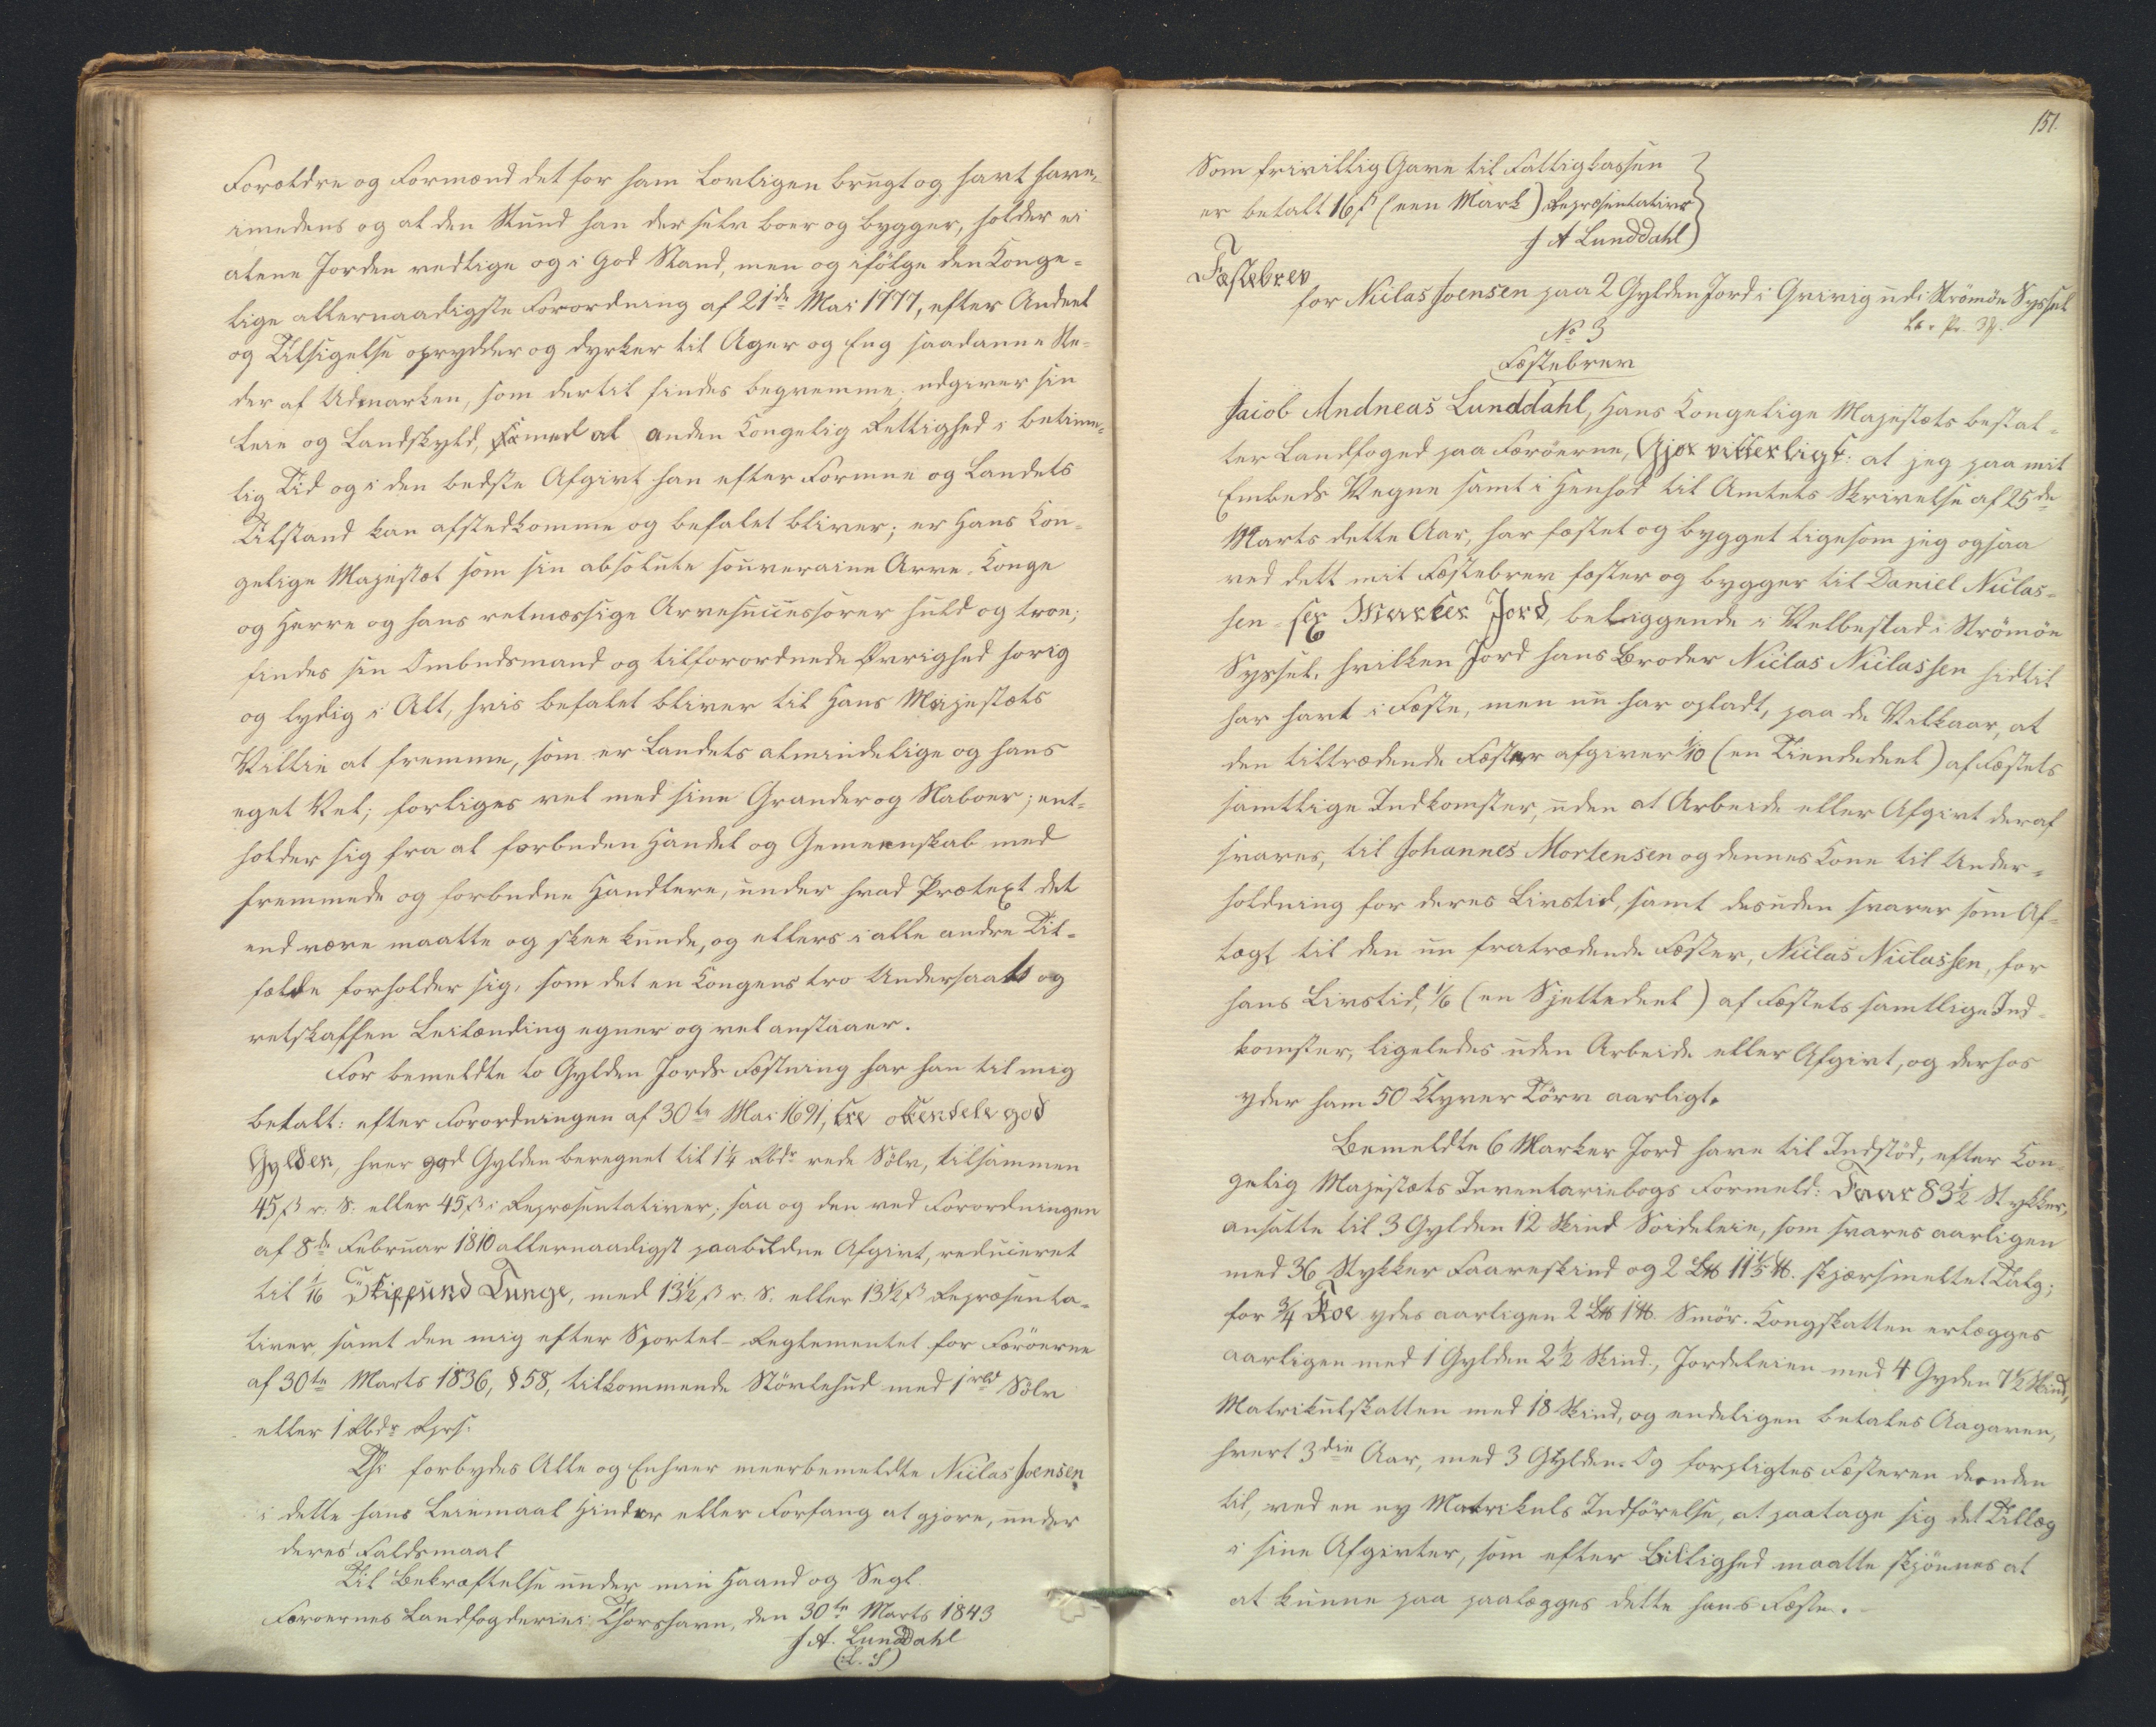 Forældre og Formænd det for ham lovligen brugt og havt have,
imedens og al den Stund han der selv boer og bygger, holder ei
alene Jorden vedlige og i god Stand, men og ifölge den Konge-
lige allernaadigste Forordning af 21de Mai 1777, efter Andeel
og Tilsigelse oprydder og dyrker til Ager og Eng saadanne Ste-
der af Udmarken, som dertil findes beqvemme, udgiver sin
Leie og Landskyld, samt al anden Kongelig Rettighed i betime-
lig Tid og i den bedste Afgivt han efter Formue og Landets
Tilstand kan afstedkomme og befalet bliver; er Hans Kon-
gelige Majestæt som sin absolute souveraine Arve-Konge
og Herre og hans retmæssige Arvesuccessorer huld og troe;
findes sin Ombudsmand og tilforordnede Øvrighed hørig
og lydig i Alt, hvis befalet bliver til Hans Majestæts
Villie at fremme, som er Landets almindelige og hans
eget Vel; forliges vel med sine Grander og Naboer; ent-
holder sig fra al forbuden Handel og Gemeenskab med
fremmede og forbudne Handlere, under hvad Prætext det
end være maatte og skee kunde, og ellers i alle andre Til-
fælde forholder sig, som det en Kongens tro Undersaat og
retskaffen Leilænding egner og vel anstaaer.
For bemeldte to Gylden Jords Fæstning har han til mig
betalt: efter Forordningen af 30te Mai 1691, tre ottendele god
Gylden, hver god Gylden beregnet til 1¼ Rbdr rede Sölv, tilsammen
45 ß r. S. eller 45 ß i Repræsentativer; saa og den ved Forordningen
af 8de Februar 1810 allernaadigst paabudne Afgivt, reduceret
til 1/16 Skippund Tunge, med 13½ ß r. S. eller 13½ ß Repræsenta-
tiver, samt den mig efter Sportel-Reglementet for Færöerne
af 30te Marts 1836, § 58, tilkommende Stövlehud med 1 rbd Sölv
eller 1 Rbdr Rprs.
Thi forbydes Alle og Enhver meerbemeldte Niclas Joensen
i dette hans Leiemaal Hinder eller Forfang at gjøre, under
deres Faldsmaal
Til Bekræftelse under min Haand og Segl.
Færøernes Landfogderie i Thorshavn, den 30te Marts 1843
J. A. Lunddahl
(L. S)
151.
Som frivillig Gave til Fattigkassen
er betalt 16 ß (een Mark) Repræsentativer
J A Lunddahl
Fæstebrev
for Niclas Joensen paa 2 Gylden Jord i Qvivig udi Strömöe Syssel
No 3
Fæstebrev
Jacob Andreas Lunddahl, Hans Kongelige Majestæts bestal-
ter Landfoged paa Færöerne, Gjør vitterligt: at jeg paa mit
Embeds Vegne samt i Henhold til Amtets Skrivelse af 25de
Marts dette Aar, har fæstet og bygget ligesom jeg ogsaa
ved dett mit Fæstebrev fæster og bygger til Daniel Niclas-
sen - sex Marker Jord, beliggende i Velbestad i Strömöe
Syssel, hvilken Jord hans Broder Niclas Niclassen hidtil
har havt i Fæste, men nu har opladt, paa de Vilkaar, at
den tiltrædende Fæster afgiver 1/10 (en Tiendedeel) af Fæstets
samtlige Indkomster, uden at Arbeide eller Afgivt deraf
svares, til Johannes Mortensen og dennes Kone til Under-
holdning for deres Livstid, samt desuden svarer som Af-
tægt til den nu fratrædende Fæster, Niclas Niclassen, for
hans Livstid, 1/6 (en Sjettedeel) af Fæstets samtlige Ind-
komster, ligeledes uden Arbeide eller Afgivt, og derhos
yder ham 50 Klyver Törv aarligt.
Bemeldte 6 Marker Jord have til Indstöd, efter Kon-
gelig Majestæts Inventariebogs Formeld: Faar 83½ Stykker,
ansatte til 3 Gylden 12 Skind Soideleie, som svares aarligen
med 36 Stykker Faareskind og 2 L℔ 11⅕ ℔. skjærsmeltet Talg;
for ¾ Koe ydes aarligen 2 L℔ 1 ℔. Smör. Kongskatten erlægges
aarligen med 1 Gylden 2½ Skind, Jordeleien med 4 Gyden 7½ Skind,
Matrikulskatten med 18 Skind, og endeligen betales Aagaven,
hvert 3die Aar, med 3 Gylden. Og forpligtes Fæsteren desuden
til, ved en ny Matrikuls Indförelse, at paatage sig det Tillæg
i sine Afgivter, som efter Billighed maatte skjönnes at
at kunne paa paalægges dette hans Fæste.